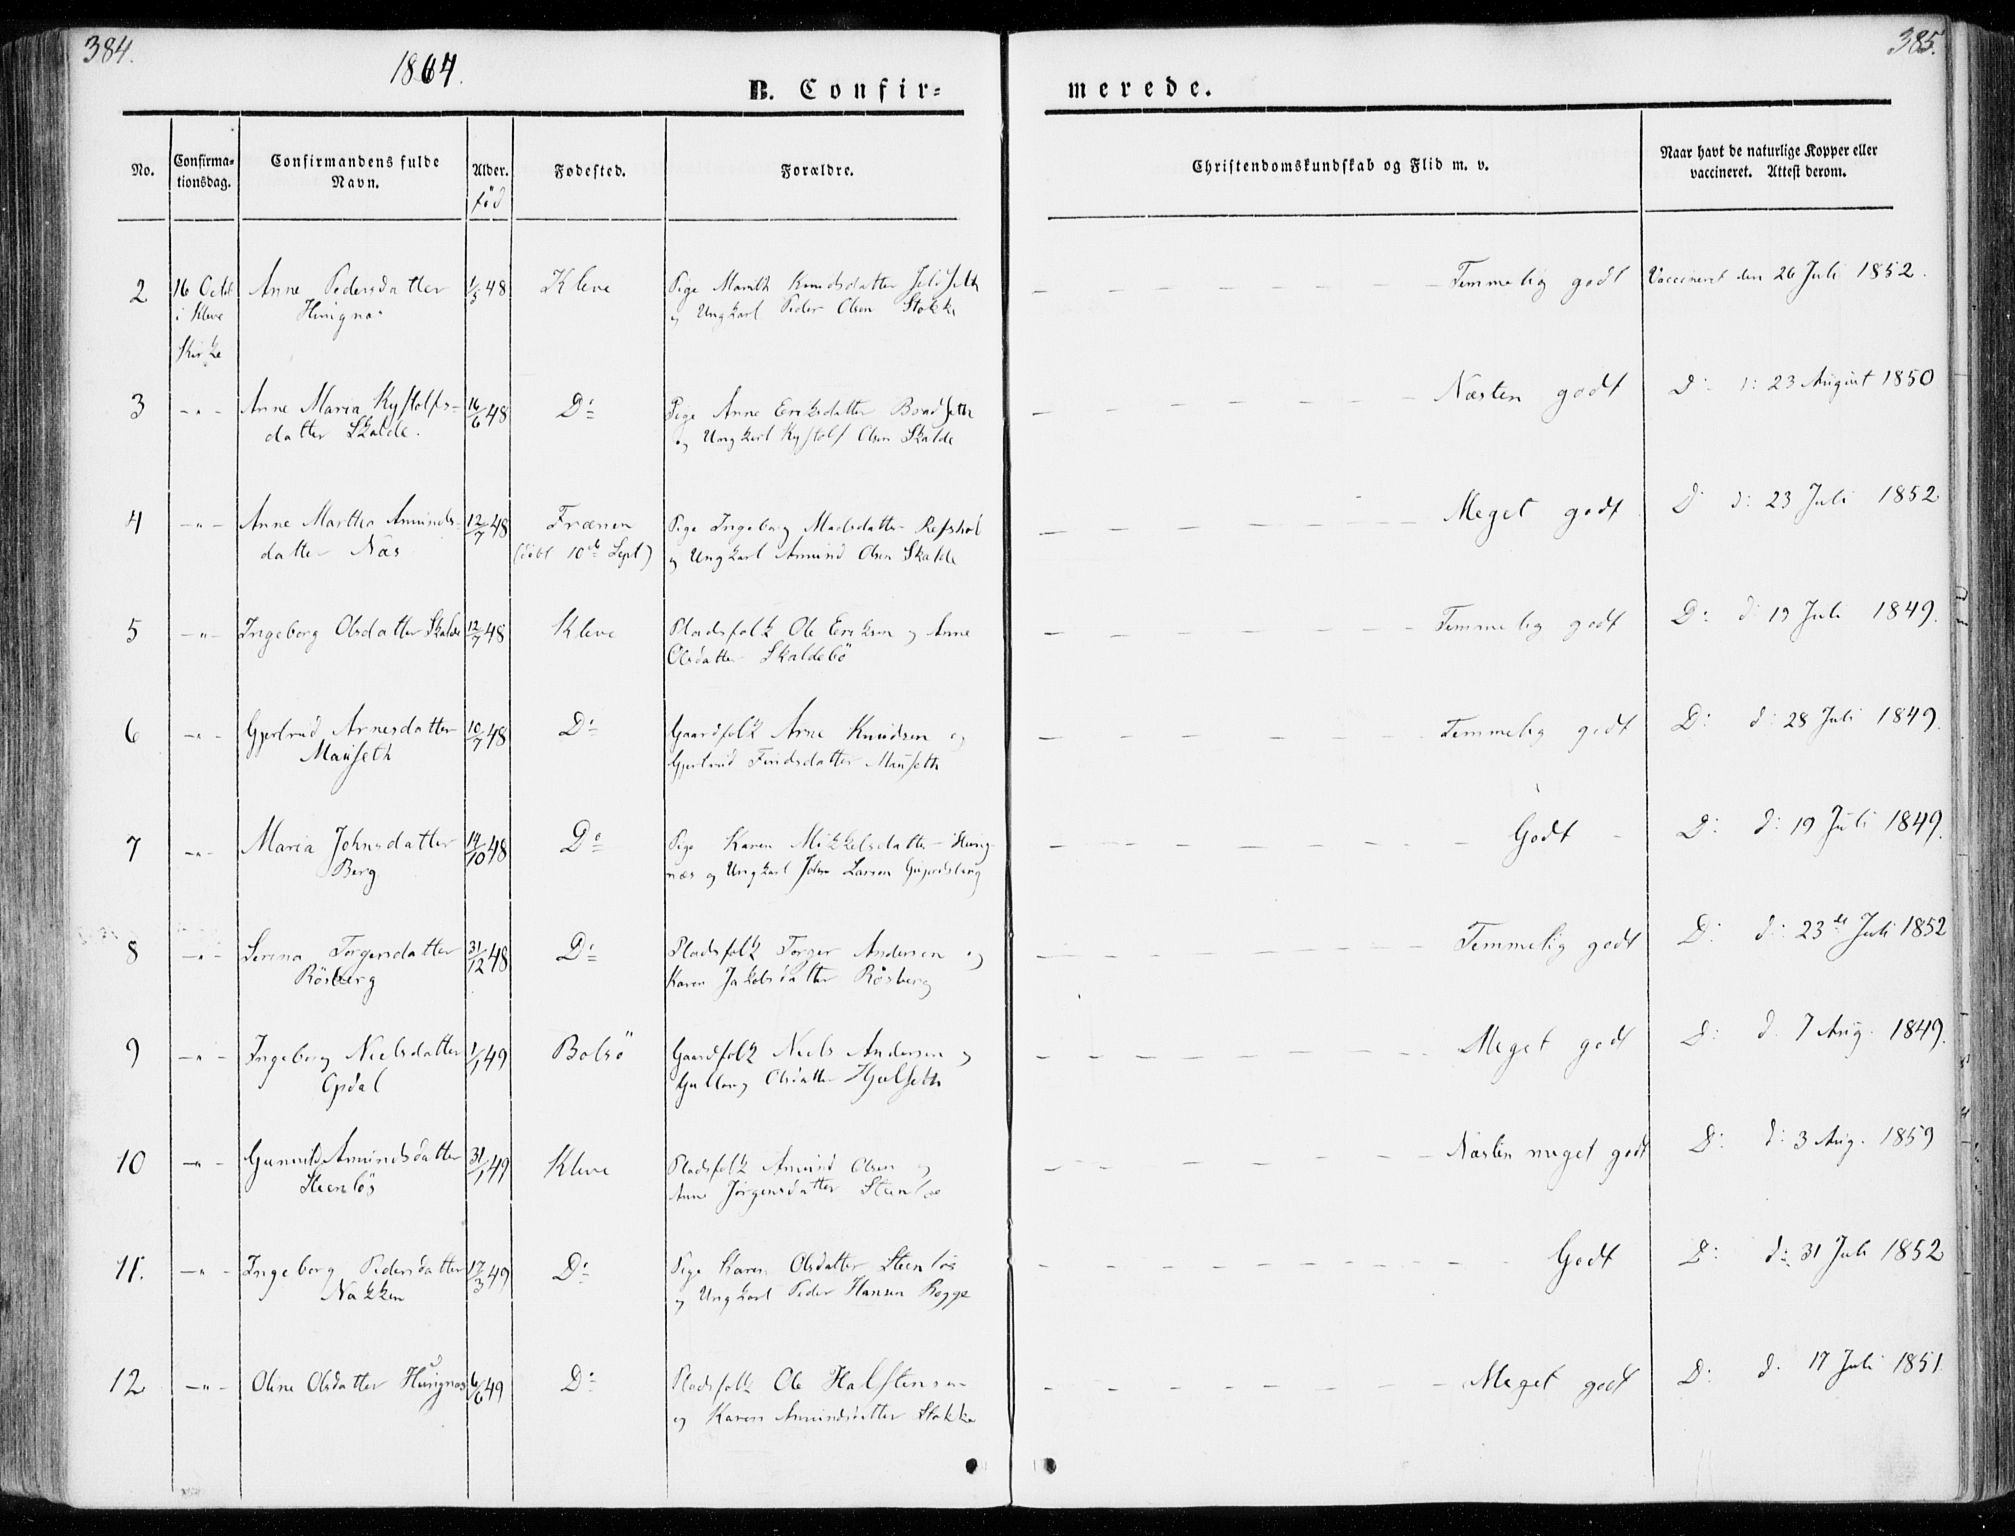 384.
385.
1864.
B. Confir=
merede.
No.
Confirma=
tionsdag.
Confirmandens fulde
Navn.
Alder.
fød
Fødested.
Forældre.
Christendomskundskab og Flid m. v.
Naar havt de naturlige Kopper eller
vaccineret. Attest derom.
2 16 Octbr Anne Pedersdatter 1/5 48 Kleve Pige Knudsdatter Temmelig godt Vaccineret den 26 Juli 1852.
i Kleve Hungnæs og Ungkarl Peder Olsen Stokke
Kirke
3 -"- Anne Maria Kystolfs- 16/6 48 Do Pige Anne Eriksdatter Bondseth Næsten godt Do d: 23 August 1850
datter Skalde. og Ungkarl Kystolf Olsen Skalde
4 -"- Anne Martha Amunds- 12/7 48 Frænen Pige Ingeborg Madsdatter Meget godt D: d: 23 Juli 1852
datter Næs (døbt 10de Sept) og Ungkarl Amund Olsen Skalde
5 -"- Ingeborg Olsdatter Skalde 12/7 48 Kleve Pladsfolk Ole Eriksen og Anne Temmelig godt D: d: 19 Juli 1849.
Olsdatter Skaldebö
6 -"- Gjertrud Arnesdatter 10/7 48 Do Gaardfolk Arne Knudsen og Temmelig godt D: d: 28 Juli 1849.
Mauseth Gjertrud Findsdatter Mauseth
7 -"- Maria Johnsdatter 14/10 48 Do Pige Karen Mikkelsdatter Hung- Godt D: d: 19 Juli 1849.
Berg næs og Ungkarl John Larsen
8 -"- Serina Torgersdatter 31/12 48 Do Pladsfolk Torger Andersen og Temmelig godt D: d: 23de Juli 1852
Rösberg Karen Jakobsdatter Rösberg
9 -"- Ingeborg Nielsdatter 1/1 49 Bolsö Gaardfolk Niels Andersen og Meget godt D: d. 7 Aug. 1849.
Opdal Olsdatter Hjelseth
10 -"- Amundsdatter 31/1 49 Kleve Pladsfolk Amund Olsen og Næsten meget godt D: d: 3 Aug. 1859
Steenlös Anne Jörgensdatter Steenlös
11. -"- Ingeborg Pedersdatter 17/3 49 Do Pige Karen Olsdatter Steenlös Godt D: d: 31 Juli 1852
Nakken og Ungkarl Peder Hansen Rogge
12 -"- Oline Olsdatter Hungnæs 6/6 49 Do Pladsfolk Ole Halstensen Meget godt D: d. 17 Juli 1851
og Karen Amundsdatter Stokke